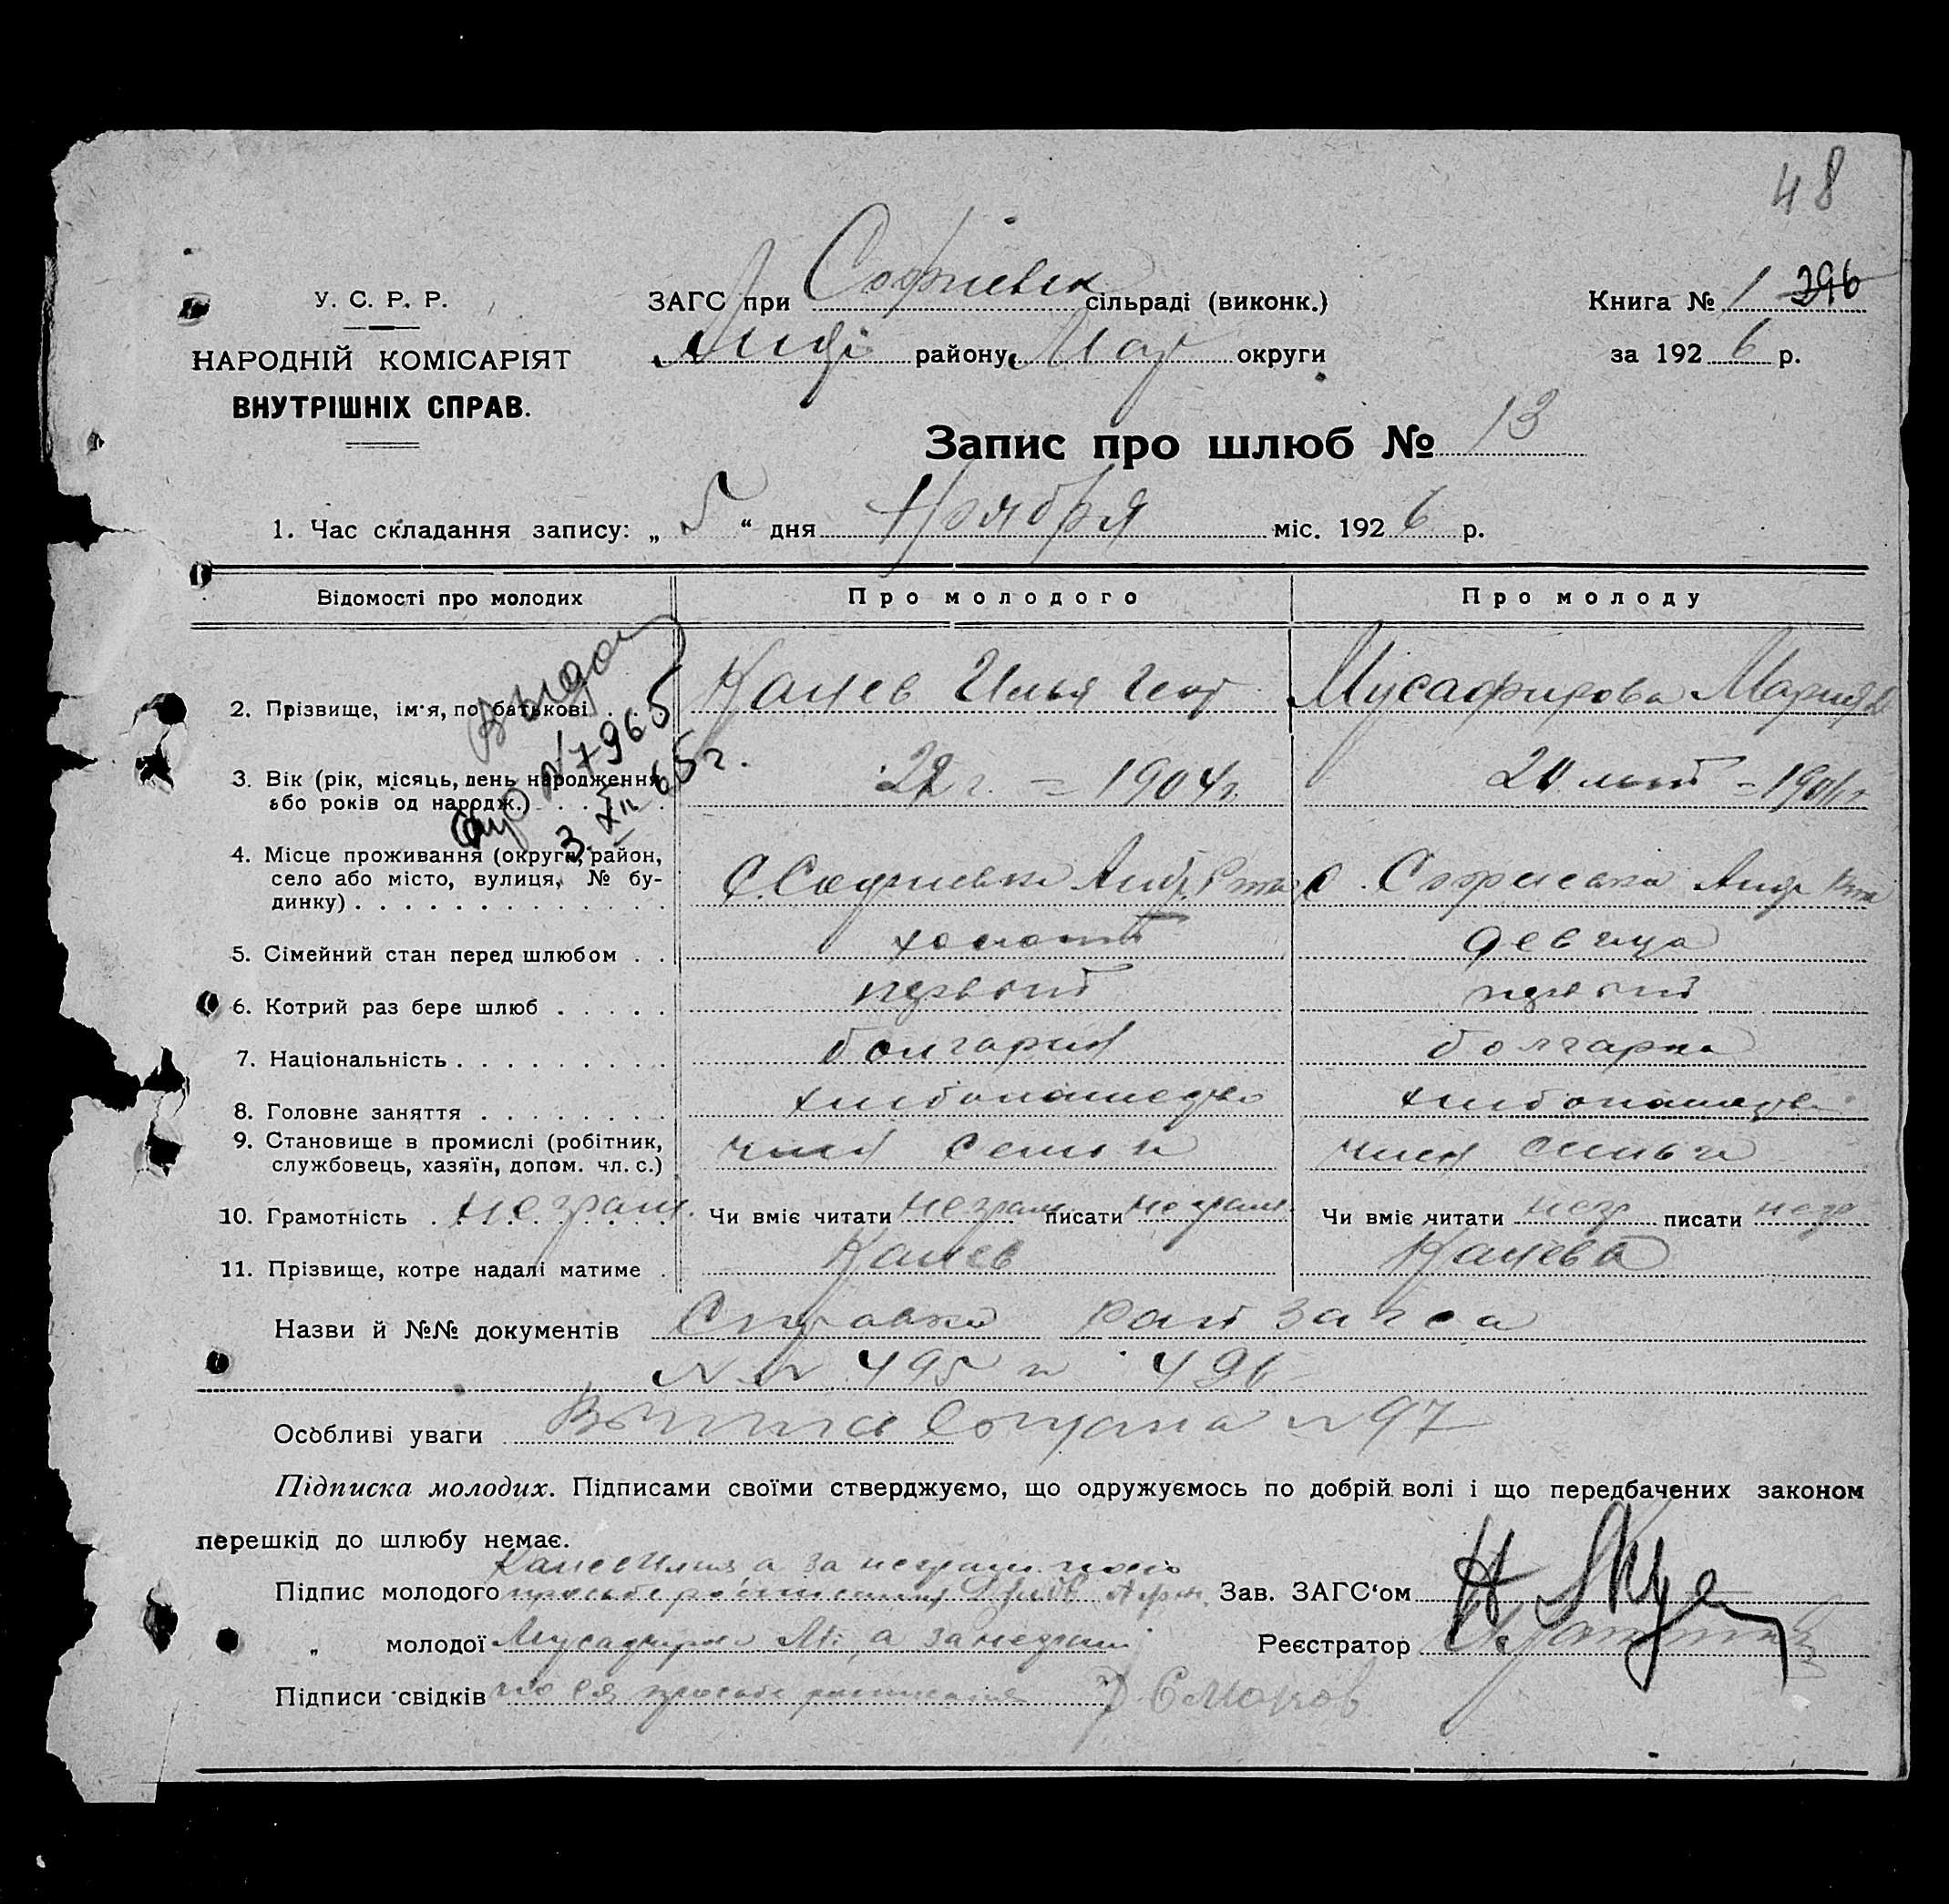 48
У. С. Р. Р.
НАРОДНІЙ КОМІСАРІЯТ
ВНУТРІШНІХ СПРАВ.
ЗАГС при Софиевск сільраді (виконк.)
району округи
Книга № 1 396
за 1926 р.
Запис про шлюб № 13
1. Час складання запису: „ 5 “ дня Ноября міс. 1926 р.
Відомості про молодих Про молодого Про молоду
2. Прізвище, ім'я, по батькові . . Канев Илья Геор Мусафирова Мария
Выдано
3. Вік (рік, місяць, день народження або років од народж.) . . . . 22 г. = 1904 г. 20 лет =
3. XII 65 г.
4. Місце проживання (округа, район,
село або місто, вулиця, № бу-
динку) . . . . . . . . . . . . . С. Софиевка Андр. Рна С. Софиевка Андр Рна
5. Сімейний стан перед шлюбом . . холост девица
6. Котрий раз бере шлюб . . . . . первый первый
7. Національність . . . . . . . . . болгарин болгарка
8. Головне заняття . . . . . . . . хлебопашество хлебопашество
9. Становище в промислі (робітник,
службовець, хазяїн, допом. чл. с.) член семьи член семьи
10. Грамотність . неграм. Чи вміє читати неграм писати неграм. Чи вміє читати негр писати негр
11. Прізвище, котре надалі матиме . Канев Канева
Назви й №№ документів Справка рай загса
№ № 495 и 496
Особливі уваги № 97
Підписка молодих. Підписами своїми стверджуємо, що одружуємось по добрій волі і що передбачених законом
перешкід до шлюбу немає.
Канев Илия а за неграм. его
Підпис молодого просьбе росписался Зав. ЗАГС‘ом
„ молодої Мусафирова М., а за неграм Реєстратор
Підписи свідків по ея просьбе росписался